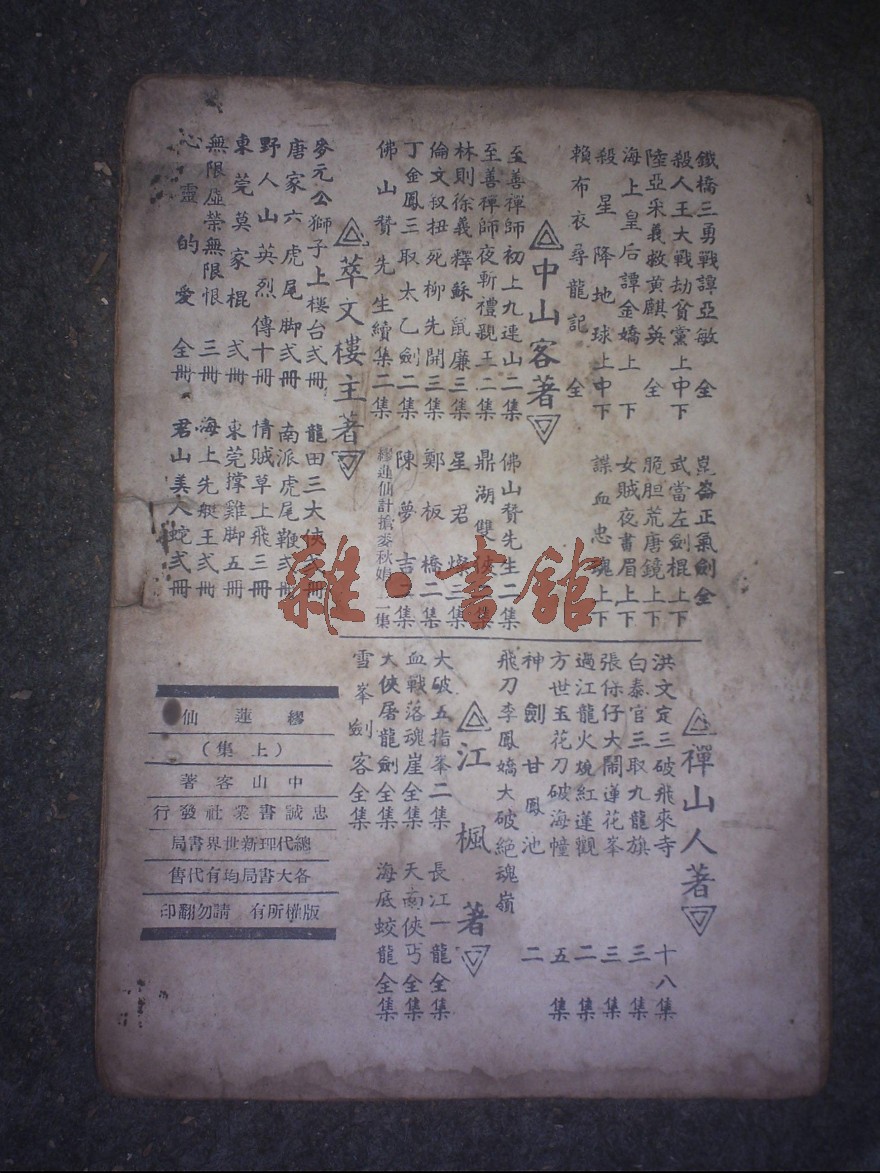 鐵橋三勇戰譚亞敏 全
殺人王大戰劫貧黨上中下
陸亞采義救黃麒英 全
海上皇后譚金嬌上下
殺星降地球上中下
賴布衣尋龍記 全
崑崙正氣劍全
武當左劍棍上下
脆胆荒唐鏡上下
女賊夜書眉上下
諜血忠魂上下
中山客著
至善禪師初上九連山二集
至善禪師夜斬禮親王二集
林則徐義釋蘇鼠廉三集
倫文叙扭死柳先開三集
丁金鳳三取太乙劍二集
佛山贊先生續集二集
佛山贊先生二集
鼎湖雙俠集
星君燦三集
鄭板橋二集
陳夢吉集
繆蓮仙計搶麥秋娟二集
萃文樓主著
麥元公獅子上樓台弍冊
唐家六虎尾脚弍冊
野人山英烈傳十冊
東莞莫家棍弍冊
無限虛榮無限恨三冊
心靈的愛全冊
龍田三大俠弍冊
南派虎尾鞭弍冊
情賊草上飛三冊
東莞撑雞脚五冊
海上先艇王弍冊
君山美人蛇弍冊
禪山人著
洪文定三破飛來寺 十八集
白泰官三取九龍旗 三集
張保仔大鬧蓮花峯 三集
過江龍火燒紅蓮觀 二集
方世玉花刀破海幢 五集
神劍甘鳳池 二
飛刀李鳳嬌大破絕魂嶺
江楓著
大破五指峯二集
血戰落魂崖全集
大俠屠龍劍全集
雪峯劍客全集
長江一龍全集
天南俠丐全集
海底蛟龍全集
仙蓮繆
(集上)
著客山中
行發社業書誠忠
局書界世新理代總
售代有均局書大各
印翻勿請 有所權版
雜·書館